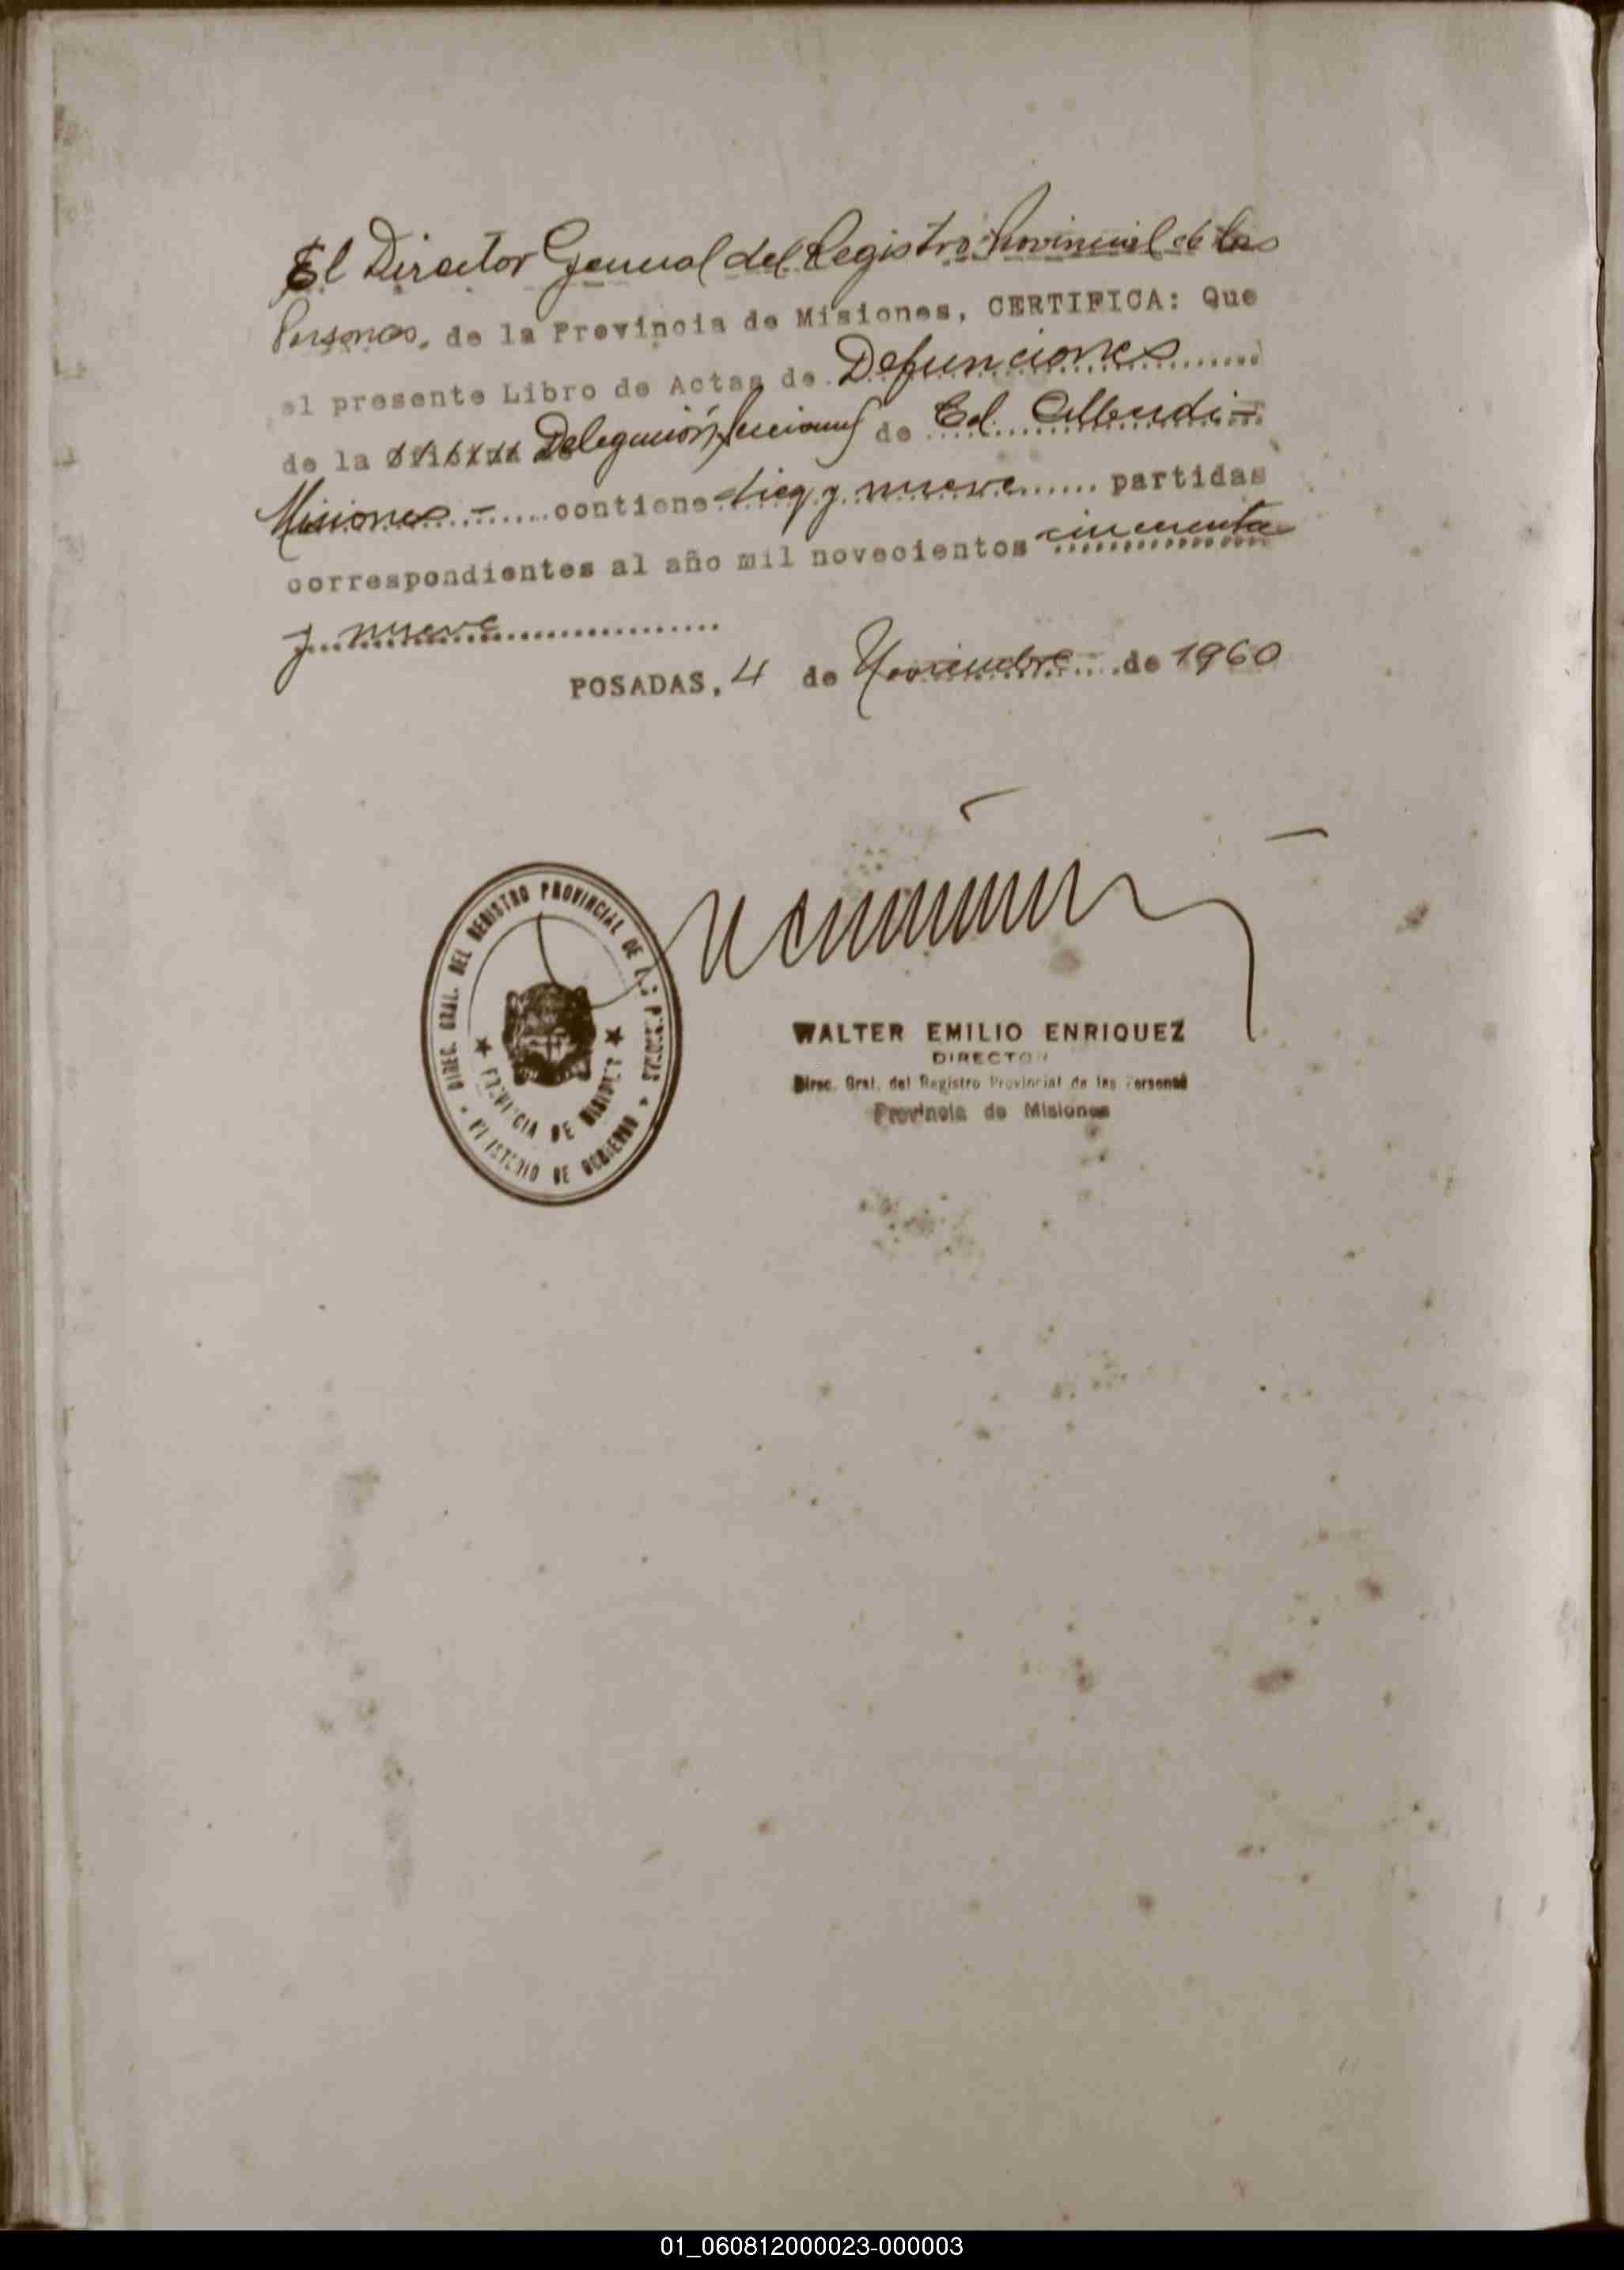 El Director General del Registro Provincial de las
Personas, de la Provincia de Misiones, CERTIFICA: Que
el presente Libro de Actas de Defunciones
de la Delegación Seccional de Cd. Alberdi -
Misiones - contiene diez y nueve partidas
correspondientes al año mil novecientos cincuenta
y nueve
POSADAS, 4 de Noviembre de 1960
DIREC. GRAL. DEL REGISTRO PROVINCIAL DE LAS PERSONAS
PROVINCIA DE MISIONES
MINISTERIO DE GOBIERNO
WALTER EMILIO ENRIQUEZ
DIRECTOR
Direc. Gral. del Registro Provincial de las Personas
Provincia de Misiones
01_060812000023-000003